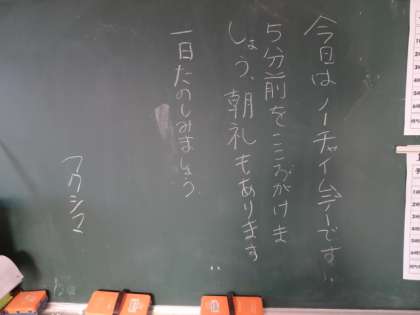 今日はノーチャイムデーです。
5分前を心がけま
しょう。朝礼もあります
一日たのしみましょう
フクシマ